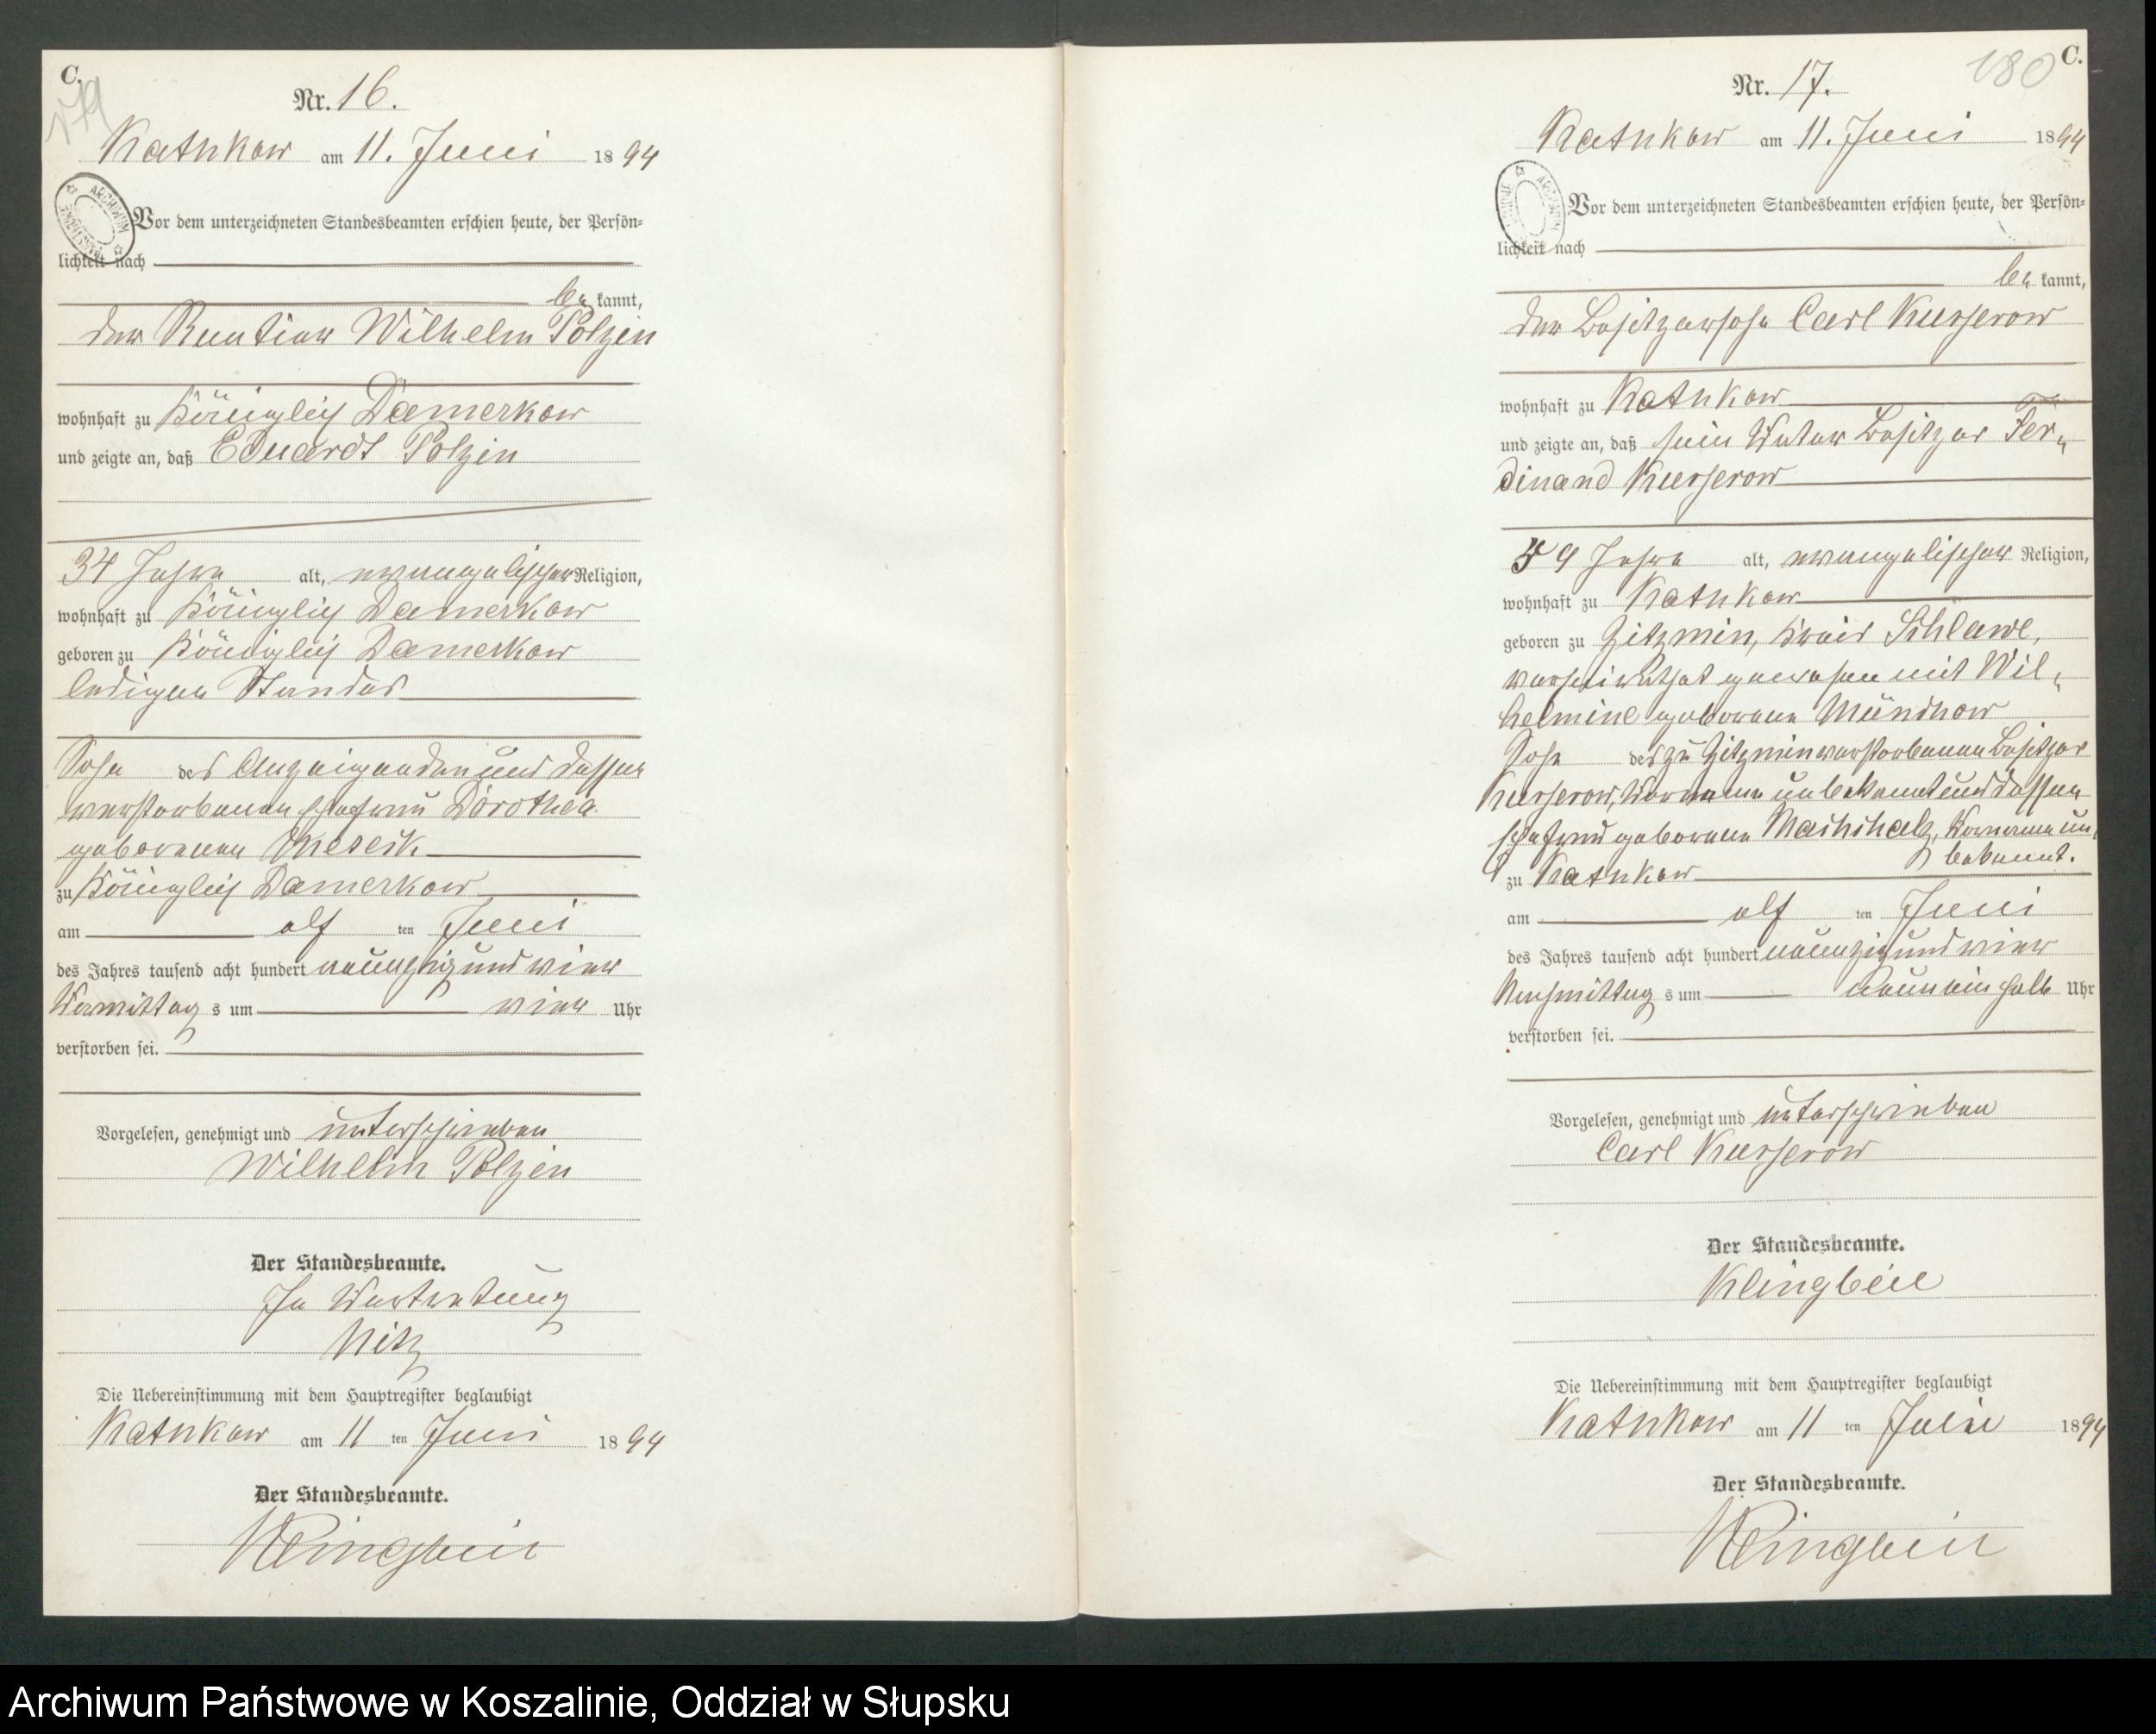 C.
179
Nr. 16.
Katkow am 11. Juni 1894
Vor dem unterzeichneten Standesbeamten erschien heute, der Persön-
lichkeit nach
be kannt,
der Rentier Wilhelm Polzin
wohnhaft zu Königlich Damerkow
und zeigte an, daß Eduardt Polzin
34 Jahre alt, evangelischer Religion,
wohnhaft zu Königlich Damerkow
geboren zu Königlich Damerkow
ledigen Standes
Sohn des Anzeigenden und dessen
verstorbenen Ehefrau Dorothea
geborenen
zu Königlich Damerkow
am elf ten Juni
des Jahres tausend acht hundert neunzig und vier
Vormittag s um vier Uhr
verstorben sei.
Vorgelesen, genehmigt und unterschrieben
Wilhelm Polzin
Der Standesbeamte.
In Vertretung
Nitz
Die Uebereinstimmung mit dem Hauptregister beglaubigt
Katkow am 11 ten Juni 1894
Der Standesbeamte.
Klingbeil
180 C.
Nr. 17.
Katkow am 11. Juni 1894
Vor dem unterzeichneten Standesbeamten erschien heute, der Persön-
lichkeit nach
be kannt,
der Besitzersohn Carl Kusserow
wohnhaft zu Katkow
und zeigte an, daß sein Vater Besitzer Fer-
dinand Kusserow
59 Jahre alt, evangelischer Religion,
wohnhaft zu Katkow
geboren zu Zitzmin, Kreis Schlawe,
verheirathet gewesen mit Wil-
helmine geborene Mündhow
Sohn des zu Zitzmin verstorbenen Besitzer
Kusserow, Vorname unbekannt und dessen
Ehefrau geborene Vorname un
bekannt.
zu Katkow
am elf ten Juni
des Jahres tausend acht hundert neunzig und vier
Nachmittag s um Uhr
verstorben sei.
Vorgelesen, genehmigt und unterschrieben
Carl Kusserow
Der Standesbeamte.
Klingbeil
Die Uebereinstimmung mit dem Hauptregister beglaubigt
Katkow am 11 ten Juni 1894
Der Standesbeamte.
Klingbeil
Archiwum Państwowe w Koszalinie, Oddział w Słupsku